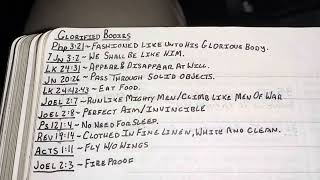 GLORIFIED BODIES
Php 3:21 ~ FASHIONED LIKE UNTO HIS GLORIOUS BODY.
1 JN 3:2 ~ WE SHALL BE LIKE HIM.
LK 24:31 ~ APPEAR & DISAPPEAR AT WILL.
JN 20:26 ~ PASS THROUGH SOLID OBJECTS.
LK 24:42,43 ~ EAT FOOD.
JOEL 2:7 ~ RUN LIKE MIGHTY MEN/CLIMB LIKE MEN OF WAR
JOEL 2:8 ~ PERFECT AIM/INVINCIBLE
PS 121:4 ~ NO NEED FOR SLEEP.
REV 19:14 ~ CLOTHED IN FINE LINEN, WHITE AND CLEAN.
ACTS 1:11 ~ FLY W/O WINGS
JOEL 2:3 ~ FIRE PROOF